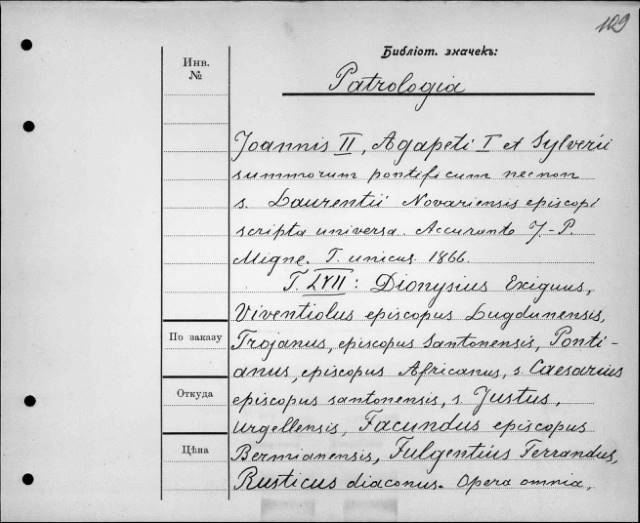 129
Библіот. значекъ:
Инв.
№
Patrologia
Joannis II, Agapeti I et Sylverii
summorum pontificum necnon
s. Laurentii Novariensis episcopi
scripta universa. Accurante J.-P.
Migne. T. unicus 1866.
T. LXVII: Dionysius Exiguus,
Viventiolus episcopus Lugdunensis,
По заказу
Trojanus, episcopus Santonensis, Ponti-
anus, episcopus Africanus, s. Caesarius
Откуда
episcopus santonensis, s. Justus,
urgellensis, Facundus episcopus
Цѣна
Bermianensis, Fulgentius Ferrandus,
Rusticus diaconus. Opera omnia,